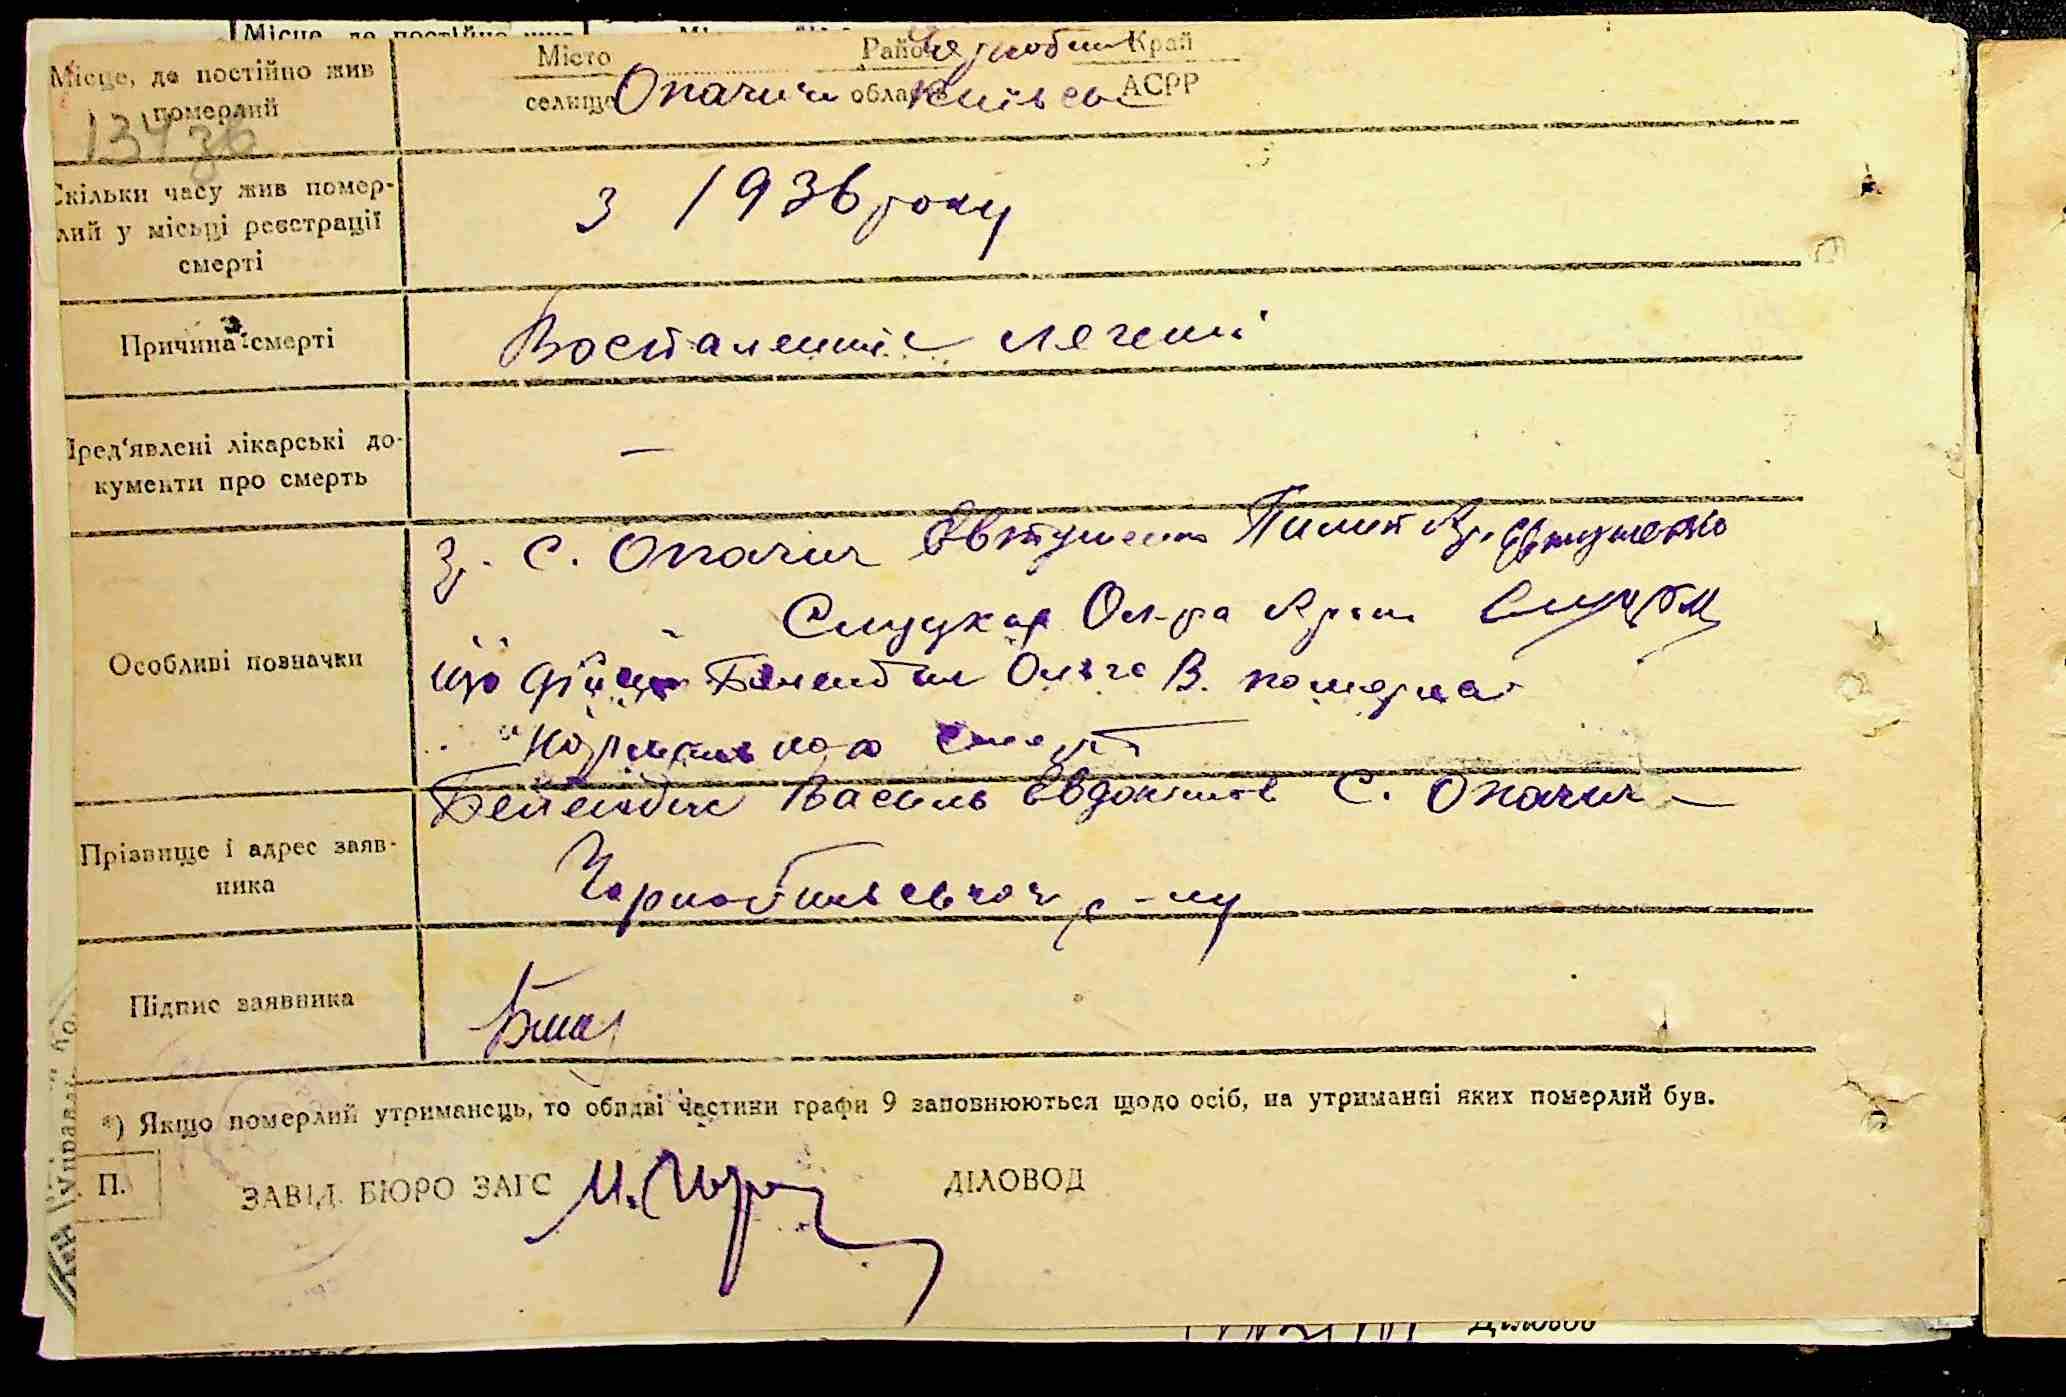 Місце, де постійно жив
Місто Район Чорнобил Край
Місце, де постійно жив померлий
селище Опачичи область Київськ АСРР
13436
Скільки часу жив помер-
лий у місці реєстрації
смерті
з 1936 року
Причина смерті
Воспаленніє легені
Пред'явлені лікарські до-
кументи про смерть
—
Особливі позначки
гр. С. Опачич Євтушенко Пилип Євтушенко
Ольга
що дійсно Бенедюк Ольга В. померла
нормальною смерт
Прізвище і адрес заяв-
ника
Бенедюк Василь Евдокимов С. Опачич
Чорнобильського р-ну
Підпис заявника
*) Якщо померлий утриманець, то обидві частини графи 9 заповнюються щодо осіб, на утриманні яких померлий був.
П.
ЗАВІД. БЮРО ЗАГС
ДІЛОВОД
Діловод